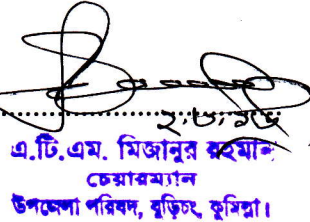 এ.টি.এম. মিজানুর রহমান
চেয়ারম্যান
উপজেলা পরিষদ, বুড়িচং, কুমিল্লা।